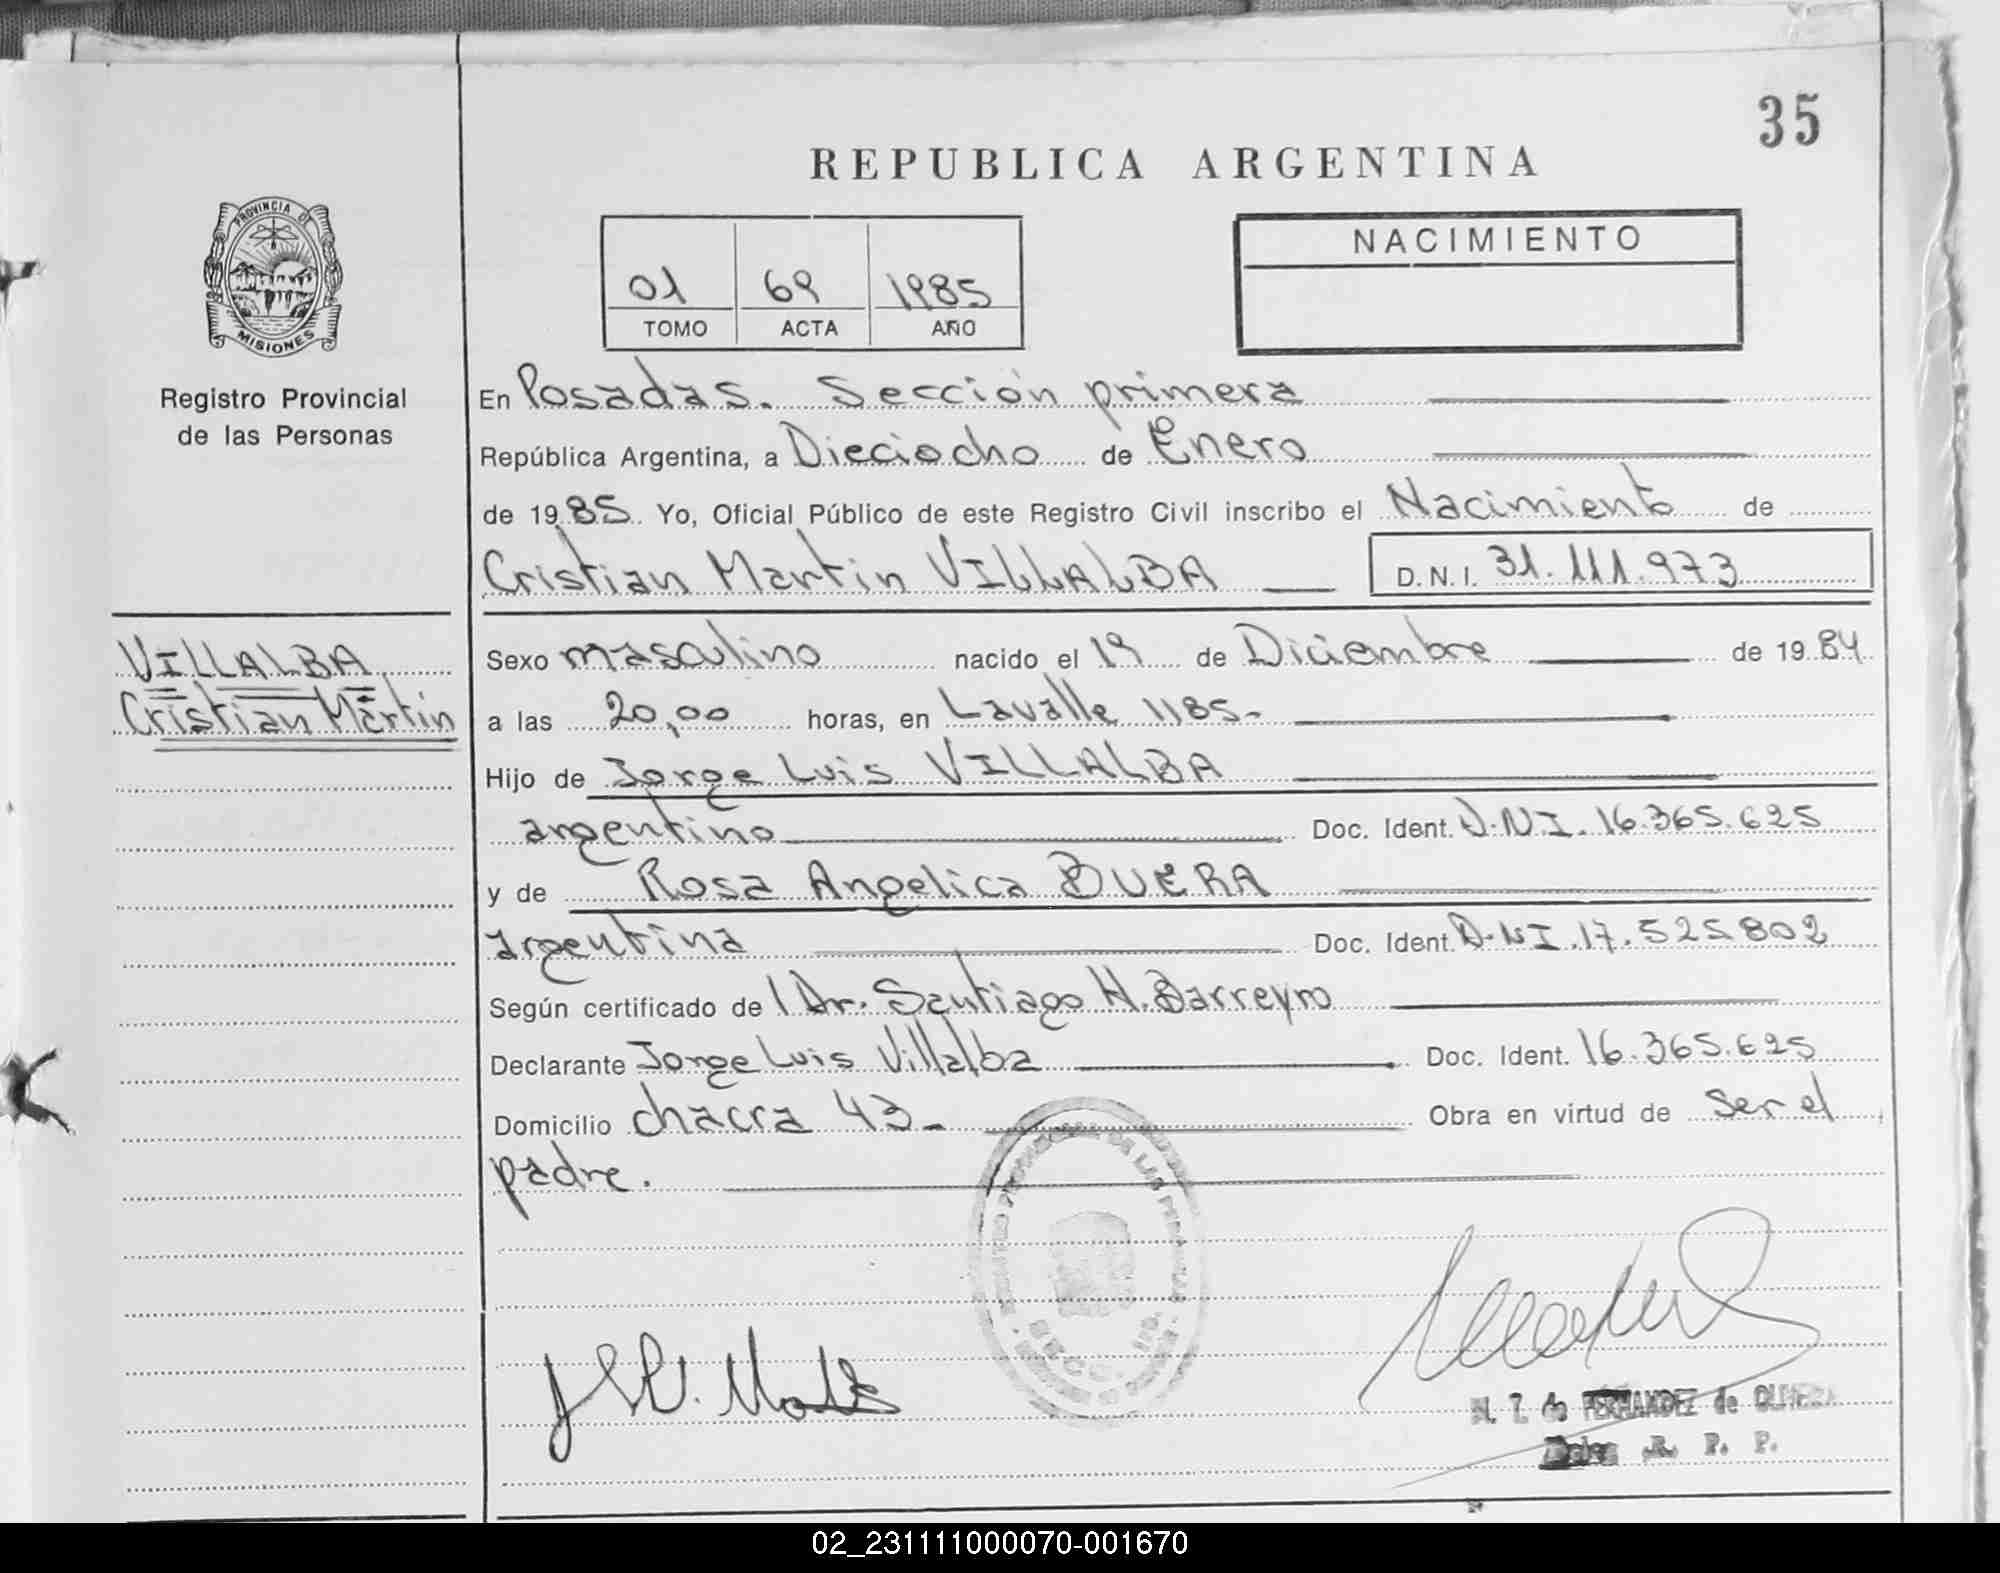 35
REPUBLICA ARGENTINA
PROVINCIA DE
MISIONES
Registro Provincial
de las Personas
01 69 1985
TOMO ACTA AÑO
NACIMIENTO
En Posadas. Sección primera
República Argentina, a Dieciocho de Enero
de 1985. Yo, Oficial Público de este Registro Civil inscribo el Nacimiento de
Cristian Martin VILLALBA D.N.I. 31.111.973
VILLALBA
Cristian Martin
Sexo masculino nacido el 19 de Diciembre de 1984
a las 20,00 horas, en Lavalle 1185-
Hijo de Jorge Luis VILLALBA
argentino Doc. Ident. D.N.I. 16.365.625
y de Rosa Angelica BUERA
argentina Doc. Ident. D.N.I. 17.525.802
Según certificado de l Dr. Santiago H. Barreyro
Declarante Jorge Luis Villalba Doc. Ident. 16.365.625
Domicilio chacra 43- Obra en virtud de ser el
padre.
FERNANDEZ de
R. P. P.
02_231111000070-001670